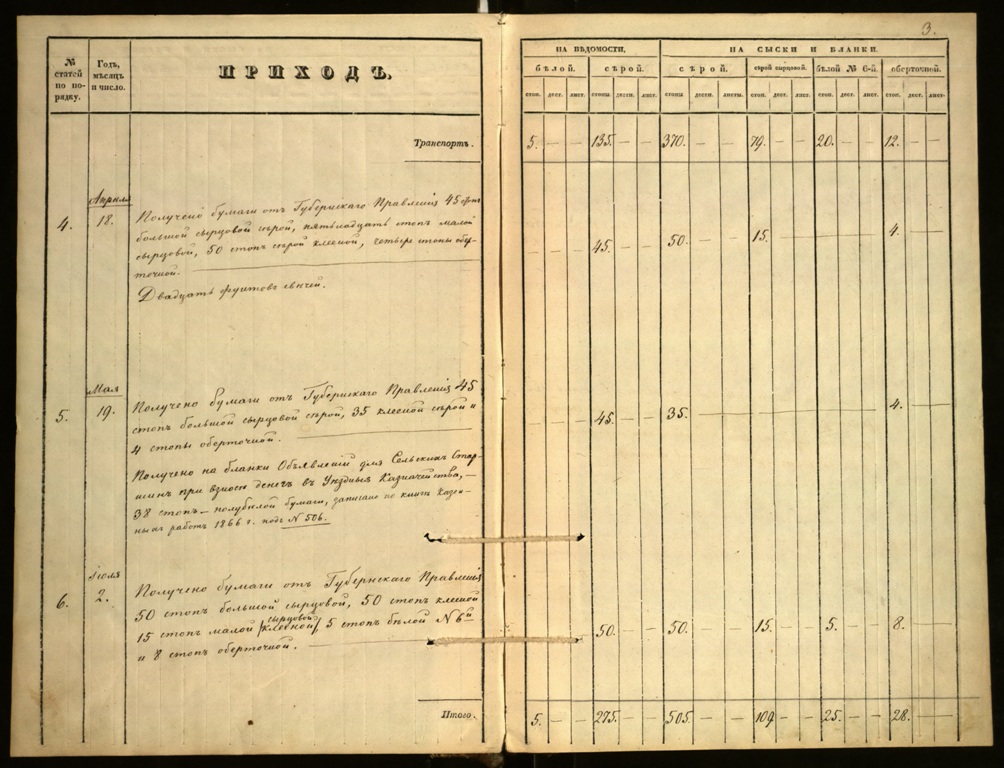 3.
№ статей по порядку.
Годъ, мѣсяцъ и число.
ПРИХОДЪ.
НА ВѢДОМОСТИ,
НА СЫСКИ И БЛАНКИ.
бѣлой. сѣрой. сѣрой. сѣрой сырцовой. бѣлой № 6-й. оберточной.
стоп. дест. лист. стопы дести. лист. стопы дести. листы. стоп. дест. лист. стоп. дест. лист. стоп. дест. лист.
Транспортъ. 5. — — 135. — — 370. — — 79. — — 20. — — 12. — —
Апрѣля
4. 18. Получено бумаги отъ Губернскаго Правленія 45 стопъ
большой сырцовой сѣрой, пятьнадцать стопъ малой
сырцовой, 50 стопъ сѣрой клееной, четыре стопы обер-
точной.
— 45. — — 50. — — 15. — — 4. — —
Двадцать фунтовъ свѣчей.
Мая
5. 19. Получено бумаги отъ Губернскаго Правленія 45
стопъ большой сырцовой сѣрой, 35 клееной сѣрой и
4 стопы оберточной.
— 45. — — 35. 4. — —
Получено на бланки Объявленій для Сельскихъ Стар-
шинъ при взносѣ денегъ въ Уѣздныя Казначейства, —
38 стопъ — полубѣлой бумаги, записано по книгѣ казен-
ныхъ работъ 1866 г. подъ № 506.
Іюля
6. 2. Получено бумаги отъ Губернскаго Правленія
50 стопъ большой сырцовой, 50 стопъ клееной
сырцовой
15 стопъ малой (клееной) 5 стопъ бѣлой № 6й
и 8 стопъ оберточной.
50. — — 50. — — 15. — — 5. — — 8. — —
Итого. 5. — — 275. — — 505. — — 109 — — 25. — — 28. — —